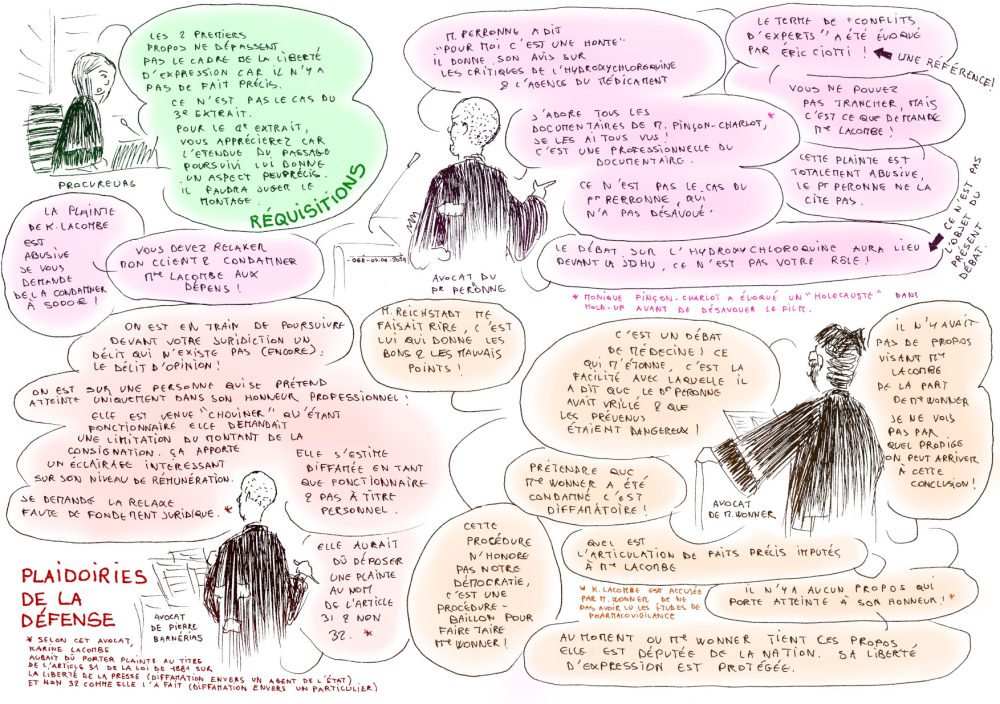 LES 2 PREMIERS
PROPOS NE DÉPASSENT
PAS LE CADRE DE LA LIBERTÉ
D'EXPRESSION CAR IL N'Y A
PAS DE FAIT PRÉCIS.
CE N'EST PAS LE CAS DU
3e EXTRAIT.
POUR LE 4e EXTRAIT,
VOUS APPRÉCIEREZ CAR
L'ÉTENDUE DU PASSAGE
POURSUIVI LUI DONNE
UN ASPECT PEU PRÉCIS.
IL FAUDRA JUGER LE
MONTAGE.
PROCUREURE
RÉQUISITIONS
M. PERRONNE A DIT
"POUR MOI C'EST UNE HONTE"
IL DONNE SON AVIS SUR
LES CRITIQUES DE L'HYDROXYCHLOROQUINE
& L'AGENCE DU MÉDICAMENT
J'ADORE TOUS LES
DOCUMENTAIRES DE M. PINÇON-CHARLOT, *
JE LES AI TOUS VUS !
C'EST UNE PROFESSIONNELLE DU
DOCUMENTAIRE.
CE N'EST PAS LE CAS DU
Pr PERRONNE, QUI
N'A PAS DÉSAVOUÉ
LE TERME DE "CONFLITS
D'EXPERTS" A ÉTÉ ÉVOQUÉ
PAR ÉRIC CIOTTI !
UNE RÉFÉRENCE !
VOUS NE POUVEZ
PAS TRANCHER, MAIS
C'EST CE QUE DEMANDE
Mme LACOMBE !
CETTE PLAINTE EST
TOTALEMENT ABUSIVE,
LE Pr PERONNE NE LA
CITE PAS.
LE DÉBAT SUR L'HYDROXYCHLOROQUINE AURA LIEU
DEVANT LA JDHU, CE N'EST PAS VOTRE RÔLE !
CE N'EST PAS
L'OBJET DU
PRÉSENT
DÉBAT.
LA PLAINTE
DE K. LACOMBE
EST
ABUSIVE
JE VOUS
DEMANDE
DE LA CONDAMNER
À 5000 € !
VOUS DEVEZ RELAXER
MON CLIENT & CONDAMNER
Mme LACOMBE AUX
DÉPENS !
AVOCAT DU
Pr PERONNE
* MONIQUE PINÇON-CHARLOT A ÉVOQUÉ UN "HOLOCAUSTE" DANS
HOLD-UP AVANT DE DÉSAVOUER LE FILM.
ON EST EN TRAIN DE POURSUIVRE
DEVANT VOTRE JURIDICTION UN
DÉLIT QUI N'EXISTE PAS (ENCORE) :
LE DÉLIT D'OPINION !
ON EST SUR UNE PERSONNE QUI SE PRÉTEND
ATTEINTE UNIQUEMENT DANS SON HONNEUR PROFESSIONNEL !
ELLE EST VENUE "CHOUINER" QU'ÉTANT
FONCTIONNAIRE ELLE DEMANDAIT
UNE LIMITATION DU MONTANT DE LA
CONSIGNATION. ÇA APPORTE
UN ÉCLAIRAGE INTÉRESSANT
SUR SON NIVEAU DE RÉMUNÉRATION.
JE DEMANDE LA RELAXE
FAUTE DE FONDEMENT JURIDIQUE. *
ELLE S'ESTIME
DIFFAMÉE EN TANT
QUE FONCTIONNAIRE
& PAS À TITRE
PERSONNEL.
ELLE AURAIT
DÛ DÉPOSER
UNE PLAINTE
AU NOM
DE L'ARTICLE
31 & NON
32. *
PLAIDOIRIES
DE LA
DÉFENSE
AVOCAT
DE PIERRE
BARNÉRIAS
* SELON CET AVOCAT,
KARINE LACOMBE
AURAIT DÛ PORTER PLAINTE AU TITRE
DE L'ARTICLE 31 DE LA LOI DE 1881 SUR
LA LIBERTÉ DE LA PRESSE (DIFFAMATION ENVERS UN AGENT DE L'ÉTAT)
ET NON 32 COMME ELLE L'A FAIT (DIFFAMATION ENVERS UN PARTICULIER)
M. REICHSTADT ME
FAISAIT RIRE, C'EST
LUI QUI DONNE LES
BONS & LES MAUVAIS
POINTS !
C'EST UN DÉBAT
DE MÉDECINE ! CE
QUI M'ÉTONNE, C'EST LA
FACILITÉ AVEC LAQUELLE IL
A DIT QUE LE Dr PERONNE
AVAIT VRILLÉ & QUE
LES PRÉVENUS
ÉTAIENT DANGEREUX !
IL N'Y AVAIT
PAS DE PROPOS
VISANT Mme
LACOMBE
DE LA PART
DE Mme WONNER
JE NE VOIS
PAS PAR
QUEL PRODIGE
ON PEUT ARRIVER
À CETTE
CONCLUSION !
PRÉTENDRE QUE
Mme WONNER A ÉTÉ
CONDAMNÉ C'EST
DIFFAMATOIRE !
AVOCAT
DE M. WONNER
CETTE
PROCÉDURE
N'HONORE
PAS NOTRE
DÉMOCRATIE,
C'EST UNE
PROCÉDURE-
BAILLON POUR
FAIRE TAIRE
Mme WONNER !
QUEL EST
L'ARTICULATION DE FAITS PRÉCIS IMPUTÉS
À Mme LACOMBE
* K. LACOMBE EST ACCUSÉE
PAR M. WONNER DE NE
PAS AVOIR LU LES ÉTUDES DE
PHARMACOVIGILANCE
IL N'Y A AUCUN PROPOS QUI
PORTE ATTEINTE À SON HONNEUR ! *
AU MOMENT OU Mme WONNER TIENT CES PROPOS
ELLE EST DÉPUTÉE DE LA NATION. SA LIBERTÉ
D'EXPRESSION EST PROTÉGÉE.